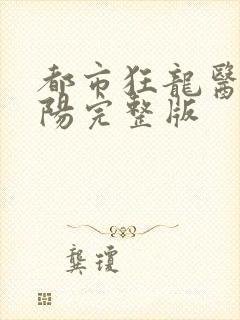 都市狂龍醫
陽完整版
龔瓊